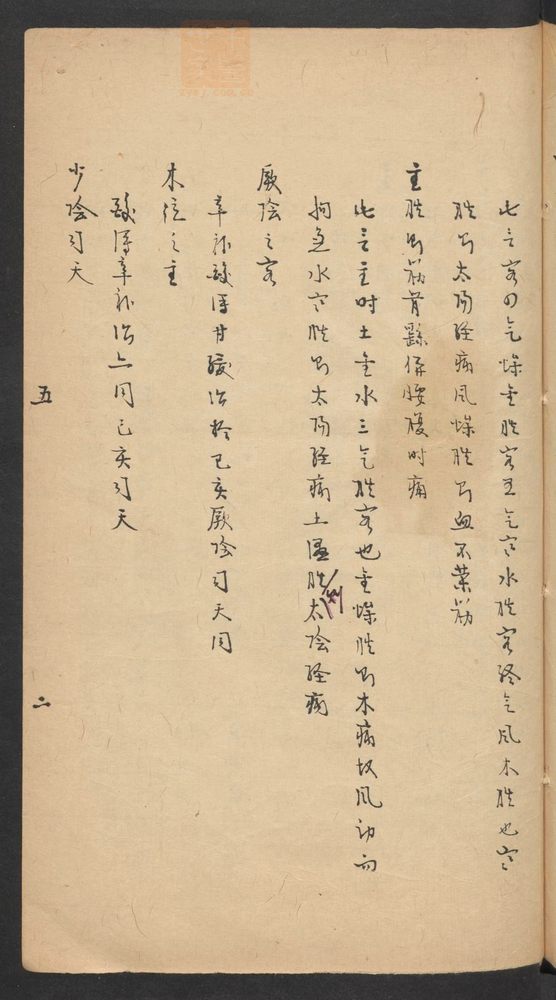 此言客四气燥金胜客五气寒水胜客终气风木胜也寒
胜则太阳经痛风燥胜则血不荣筋
主胜则筋骨繇併腰腹时痛
此言主时土金水三气胜客也金燥胜则木痛故风动而
拘急水寒胜则太阳经痛土湿胜则太阴经痛
厥阴之客
辛补酸泻甘缓治於巳亥厥阴司天同
木位之主
酸泻辛补治上同巳亥司天
少阴司天
五
二